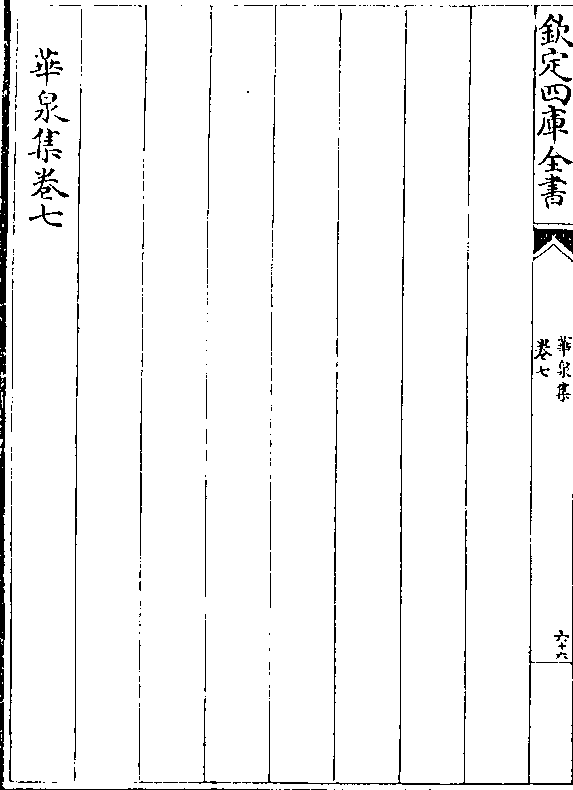 欽定四庫全書
華泉集
卷七
六十六
華泉集卷七